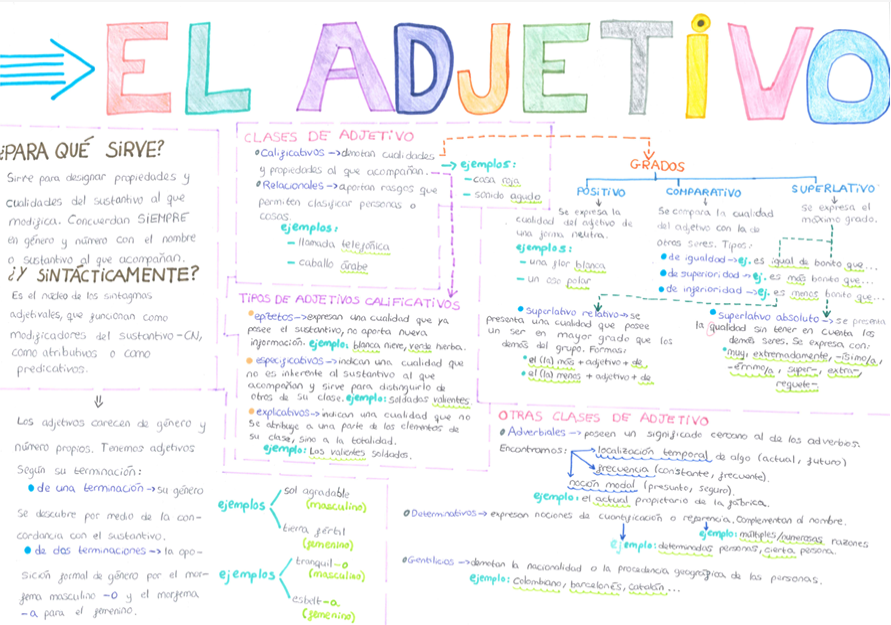 EL ADJETIVO
¿PARA QUÉ SIRVE?
Sirve para designar propiedades y
cualidades del sustantivo al que
modifica. Concuerdan SIEMPRE
en género y número con el nombre
o sustantivo al que acompañan.
¿Y SINTÁCTICAMENTE?
Es el núcleo de los sintagmas
adjetivales, que funcionan como
modificadores del sustantivo -CN,
como atributivos o como
predicativos.
⇓
Los adjetivos carecen de género y
número propios. Tenemos adjetivos
Según su terminación:
• de una terminación → su género
se descubre por medio de la con-
cordancia con el sustantivo.
• de dos terminaciones → la opo-
sición formal de género por el mor-
fema masculino -o y el morfema
-a para el femenino.
ejemplos
sol agradable
(masculino)
tierra fértil
(femenino)
ejemplos
tranquil-o
(masculino)
esbelt-a.
(femenino)
CLASES DE ADJETIVO
• Calificativos → denotan cualidades
y propiedades al que acompañan.
→ ejemplos:
- casa roja
- sonido agudo
• Relacionales → aportan rasgos que
permiten clasificar personas o
cosas.
ejemplos:
- llamada telefónica
- caballo árabe
TIPOS DE ADJETIVOS CALIFICATIVOS
• epítetos → expresan una cualidad que ya
posee el sustantivo, no aporta nueva
información. ejemplo: blanca nieve, verde hierba.
• especificativos → indican una cualidad que
no es inherente al sustantivo al que
acompañan y sirve para distinguirlo de
otros de su clase. ejemplo: soldados valientes.
• explicativos → indican una cualidad que no
se atribuye a una parte de los elementos de
su clase, sino a la totalidad.
ejemplo: Los valientes soldados.
GRADOS
POSITIVO
Se expresa la
cualidad del adjetivo de
una forma neutra.
ejemplos:
- una flor blanca
- un oso polar
COMPARATIVO
Se compara la cualidad
del adjetivo con la de
otros seres. Tipos:
• de igualdad → ej. es igual de bonito que...
• de superioridad → ej. es más bonito que...
• de inferioridad → ej. es menos bonito que...
SUPERLATIVO
Se expresa el
máximo grado.
• Superlativo relativo → se
presenta una cualidad que posee
un ser en mayor grado que los
demás del grupo. Formas:
• el (la) más + adjetivo + de
• el (la) menos + adjetivo + de
• Superlativo absoluto → se presenta
la cualidad sin tener en cuenta los
demás seres. Se expresa con:
• muy, extremadamente, -ísimo/a,
-érrimo/a, super-, extra-,
requete-.
OTRAS CLASES DE ADJETIVO
• Adverbiales → poseen un significado cercano al de los adverbios.
Encontramos:
localización temporal de algo (actual, futuro)
frecuencia (constante, frecuente).
noción modal (presunto, seguro).
ejemplo: el actual propietario de la fábrica.
• Determinativos → expresan nociones de cuantificación o referencia, complementan al nombre.
ejemplo: múltiples/numerosas razones
ejemplo: determinadas personas, cierta persona.
• Gentilicios → denotan la nacionalidad o la procedencia geográfica de las personas.
ejemplo: Colombiano, barcelonés, catalán...